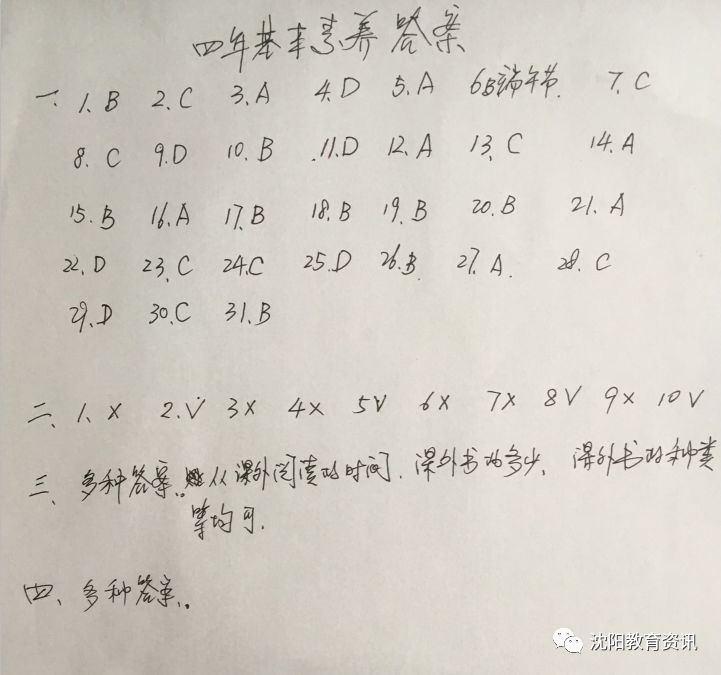 四年基本素养答案
一、1.B 2.C 3.A 4.D 5.A 6B端午节. 7.C
8.C 9.D 10.B 11.D 12.A 13.C 14.A
15.B 16.A 17.B 18.B 19.B 20.B 21.A
22.D 23.C 24.C 25.D 26.B 27.A. 28.C
29.D 30.C 31.B
二、1.X 2.V 3X 4X 5V 6X 7X 8V 9X 10V
三、多种答案。从课外阅读的时间、课外书的多少、课外书的种类
等均可.
四、多种答案。
沈阳教育资讯